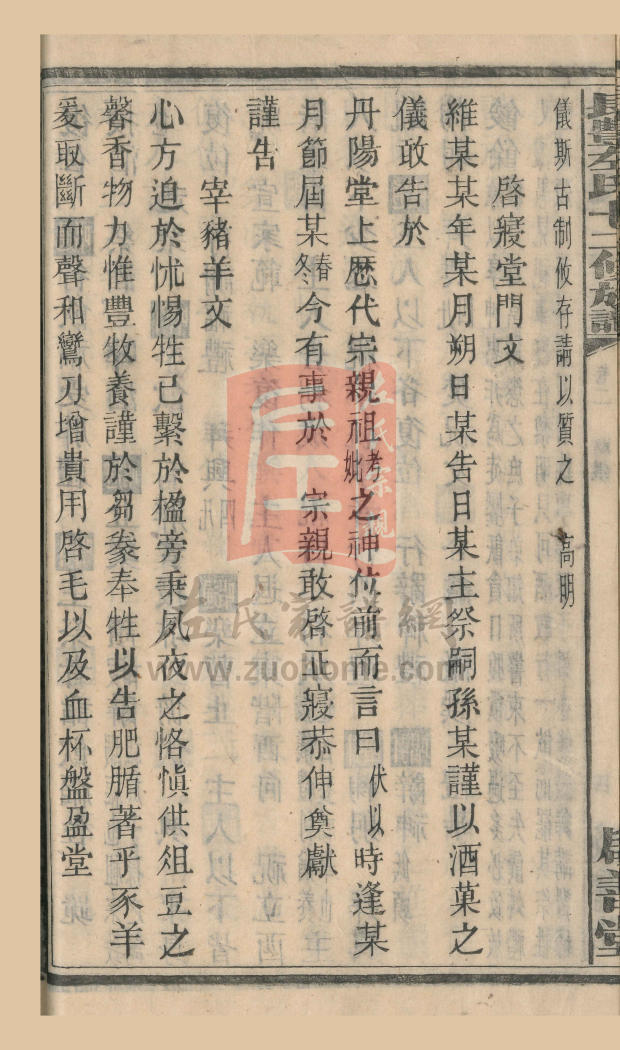 儀斯古制攸存請以質之 高明
啓寢堂門文
維某某年某月朔日某告日某主祭嗣孫某謹以酒菓之
儀敢告於
丹陽堂上歷代宗親祖考妣之神位前而言曰伏以時逢某
月節屆某春冬今有事於 宗親敢啓正寢恭伸奠獻
謹告
宰豬羊文
心方迫於怵惕牲已繫於楹旁乘夙夜之恪愼供俎豆之
馨香物力惟豐牧養謹於芻豢奉牲以告肥腯著乎豕羊
爰取斷而聲和鸞刀增貴用啓毛以及血杯盤盈堂
左氏宗親
左氏家譜網
www.zuohome.com